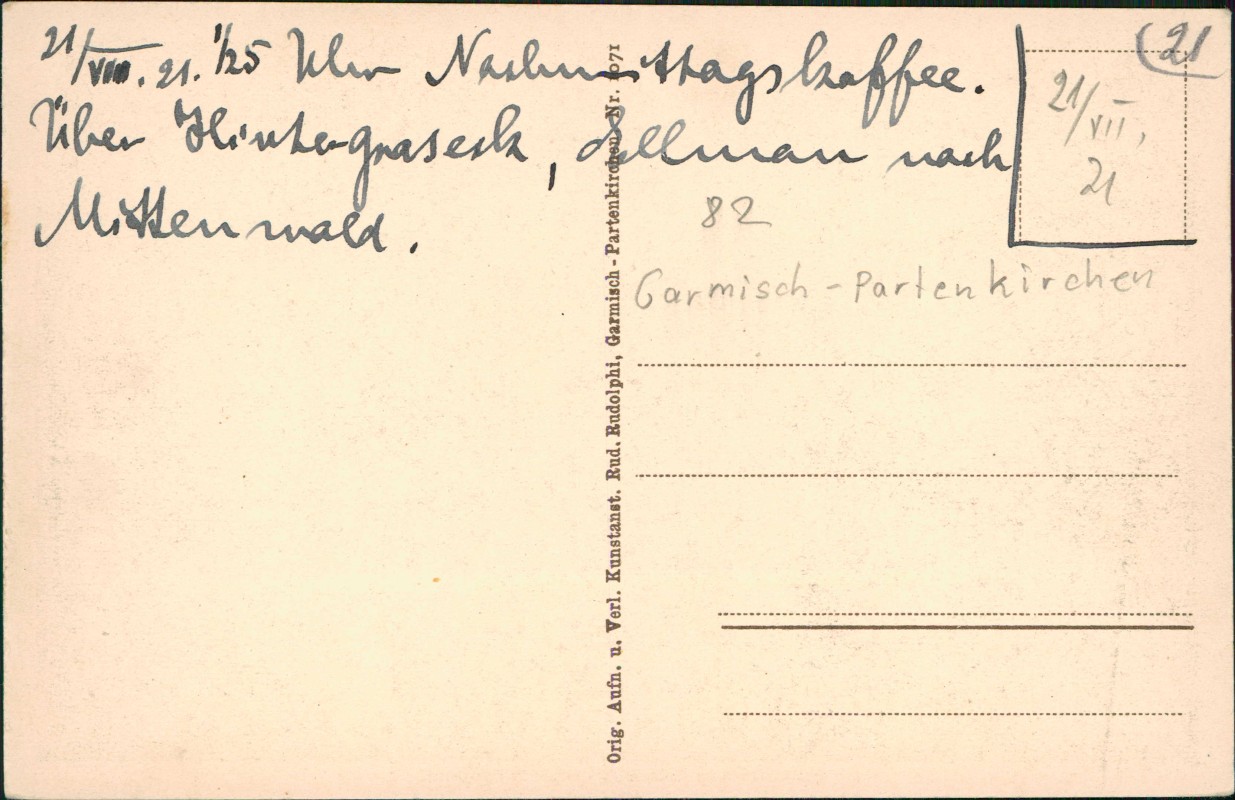 21/VIII. 21. 1/25 Uhr Nachmittagskaffee.
Über Hintergraseck, Ellmau nach
Mittenwald.
21
21/VII,
21
82
Garmisch-Partenkirchen
Orig. Aufn. u. Verl. Kunstanst. Rud. Rudolphi, Garmisch-Partenkirchen Nr. 1071